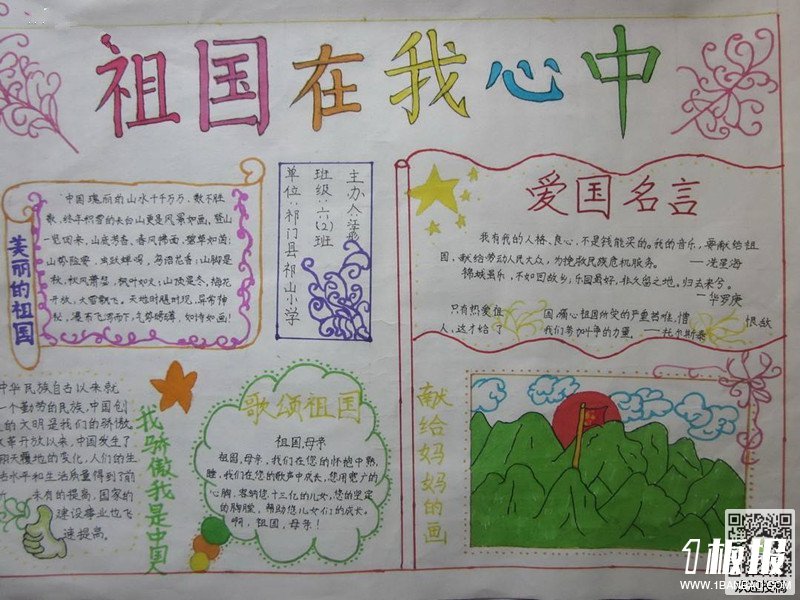 祖国在我心中
美丽的祖国
中国瑰丽的山水千千万万,数不胜
数,终年积雪的长白山更是风景如画,登山
一览四来,山底芳香,春风拂面,碧草如茵;
山势险要,虫跃蝉鸣,鸟语花香;山脚是
秋,秋风萧瑟,枫叶如火;山顶是冬,梅花
开放,大雪飘飞。天地时随时现,异常神
秘,瀑布飞泻而下,气势磅礴,如诗如画!
主办人:
班级:六(2)班
单位:祁门县祁山小学
爱国名言
我有我的人格、良心,不是钱能买的。我的音乐,要献给祖
国,献给劳动人民大众,为挽救民族危机服务。——冼星海
锦城虽乐,不如回故乡;乐园虽好,非久留之地。归去来兮。
——华罗庚
只有热爱祖
国,痛心祖国所受的严重苦难,憎
恨敌
人,这才给了
我们参加斗争的力量。——托尔斯泰
中华民族自古以来就
一个勤劳的民族,中国创
的文明是我们的骄傲。
改革开放以来,中国发生了
翻天覆地的变化,人们的生
活水平和生活质量得到了前
未有的提高,国家的
建设事业也飞
速提高。
我骄傲我是中国人
歌颂祖国
祖国,母亲
祖国,母亲,我们在您的怀抱中熟
睡,我们在您的歌声中成长,您用宽广的
心胸,容纳您十三亿的儿女,您的坚定
的胸膛,帮助您儿女们的成长。
啊,祖国,母亲!
献给妈妈的画
1板报
WWW.1BANBAO.COM
欢迎投稿